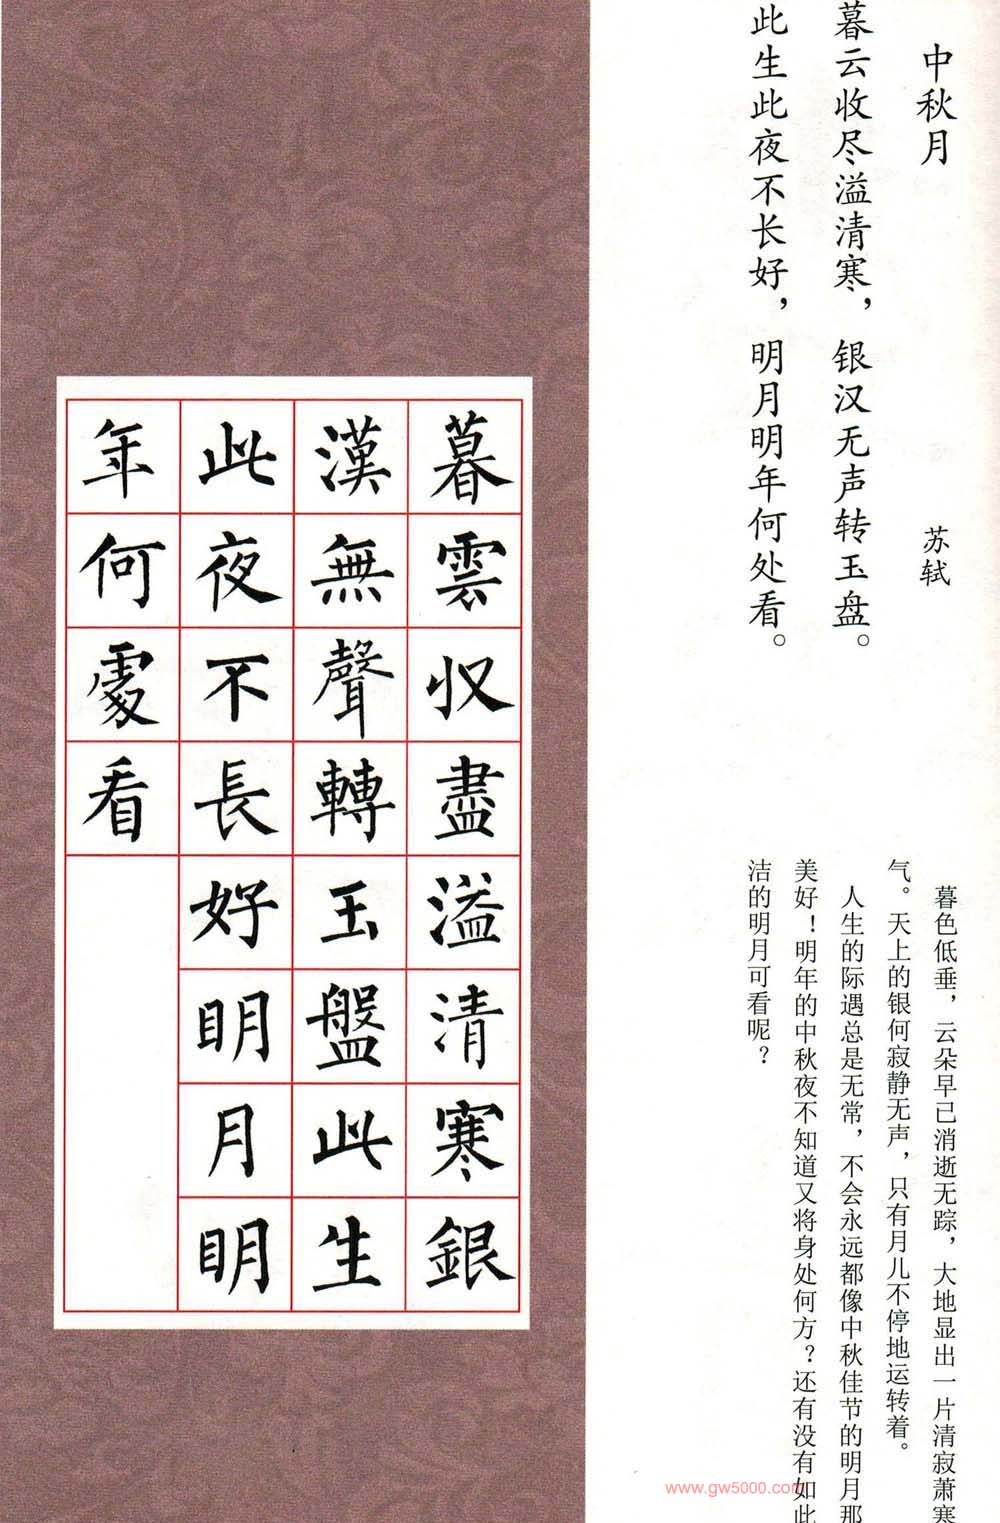 中秋月
苏轼
暮云收尽溢清寒，银汉无声转玉盘。
此生此夜不长好，明月明年何处看。
暮色低垂，云朵早已消逝无踪，大地显出一片清寂萧寒
气。天上的银何寂静无声，只有月儿不停地运转着。
人生的际遇总是无常，不会永远都像中秋佳节的明月那
美好！明年的中秋夜不知道又将身处何方？还有没有如此
洁的明月可看呢？
暮雲収盡溢清寒銀
漢無聲轉玉盤此生
此夜不長好明月明
年何處看
www.gw5000.com